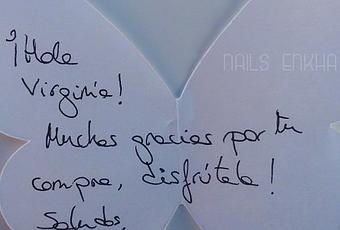 ¡Hola
Virginia!
Muchas gracias por tu
compra, disfrútala!
Saludos.
NAILS ENKHA